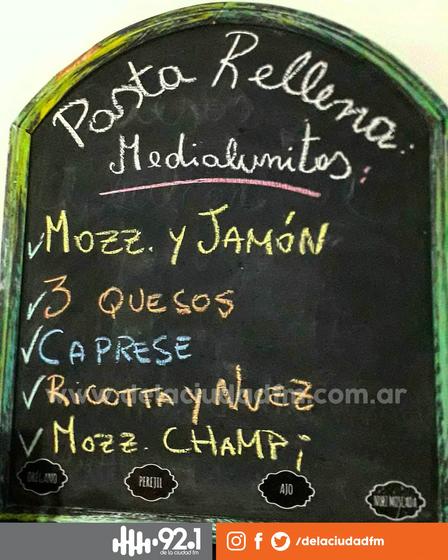 Pasta Rellena:
Medialunitas:
✓ Mozz. y Jamón
✓ 3 QUESOS
✓ CAPRESE
www.delaciudadfm.com.ar
✓ RICOTTA y NUEZ
✓ Mozz. CHAMPi
ORÉGANO
PEREJIL
AJO
NUEZ MOSCADA
92.1
de la ciudad fm
/delaciudadfm